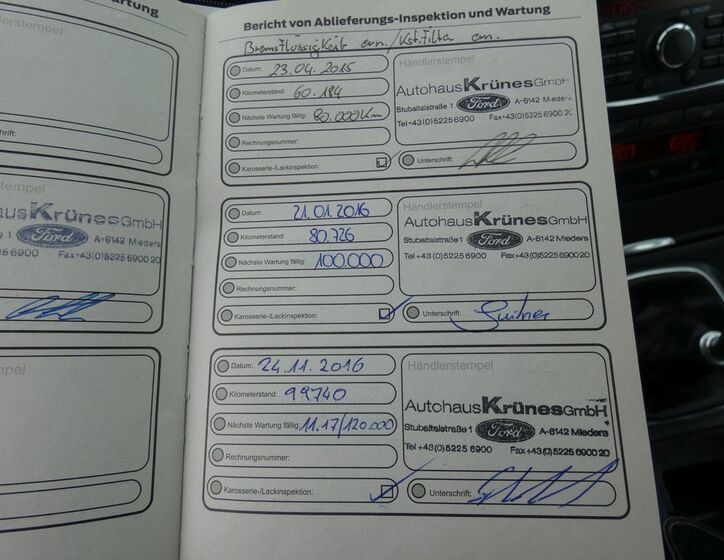 artung
Bericht von Ablieferungs-Inspektion und Wartung
Bremsflüssigkeit ern. / Kst.Filter ern.
lerstempel
Datum: 23.04.2015
Kilometerstand: 60.184
Nächste Wartung fällig: 80.000Km
Rechnungsnummer:
Karosserie-/Lackinspektion:
Händlerstempel
Autohaus KrünesGmbH
Stubaitalstraße 1 Ford A-6142 Mieders
Tel+43(0)5225 6900 Fax+43(0)5225 6900 20
Unterschrift:
schrift:
stempel
haus KrünesGmbH
ße 1 Ford A-6142 Mieders
6900 Fax+43(0)5225 6900 20
Datum: 21.01.2016
Kilometerstand: 80.726
Nächste Wartung fällig: 100.000
Rechnungsnummer:
Karosserie-/Lackinspektion:
Händlerstempel
Autohaus KrünesGmbH
Stubaitalstraße 1 Ford A-6142 Mieders
Tel+43(0)5225 6900 Fax+43(0)5225 6900 20
Unterschrift:
mpel
Datum: 24.11.2016
Kilometerstand: 99740
Nächste Wartung fällig: 11.17/120.000
Rechnungsnummer:
Karosserie-/Lackinspektion:
Händlerstempel
Autohaus KrünesGmbH
Stubaitalstraße 1 Ford A-6142 Mieders
Tel+43(0)5225 6900 Fax+43(0)5225 6900 20
Unterschrift: